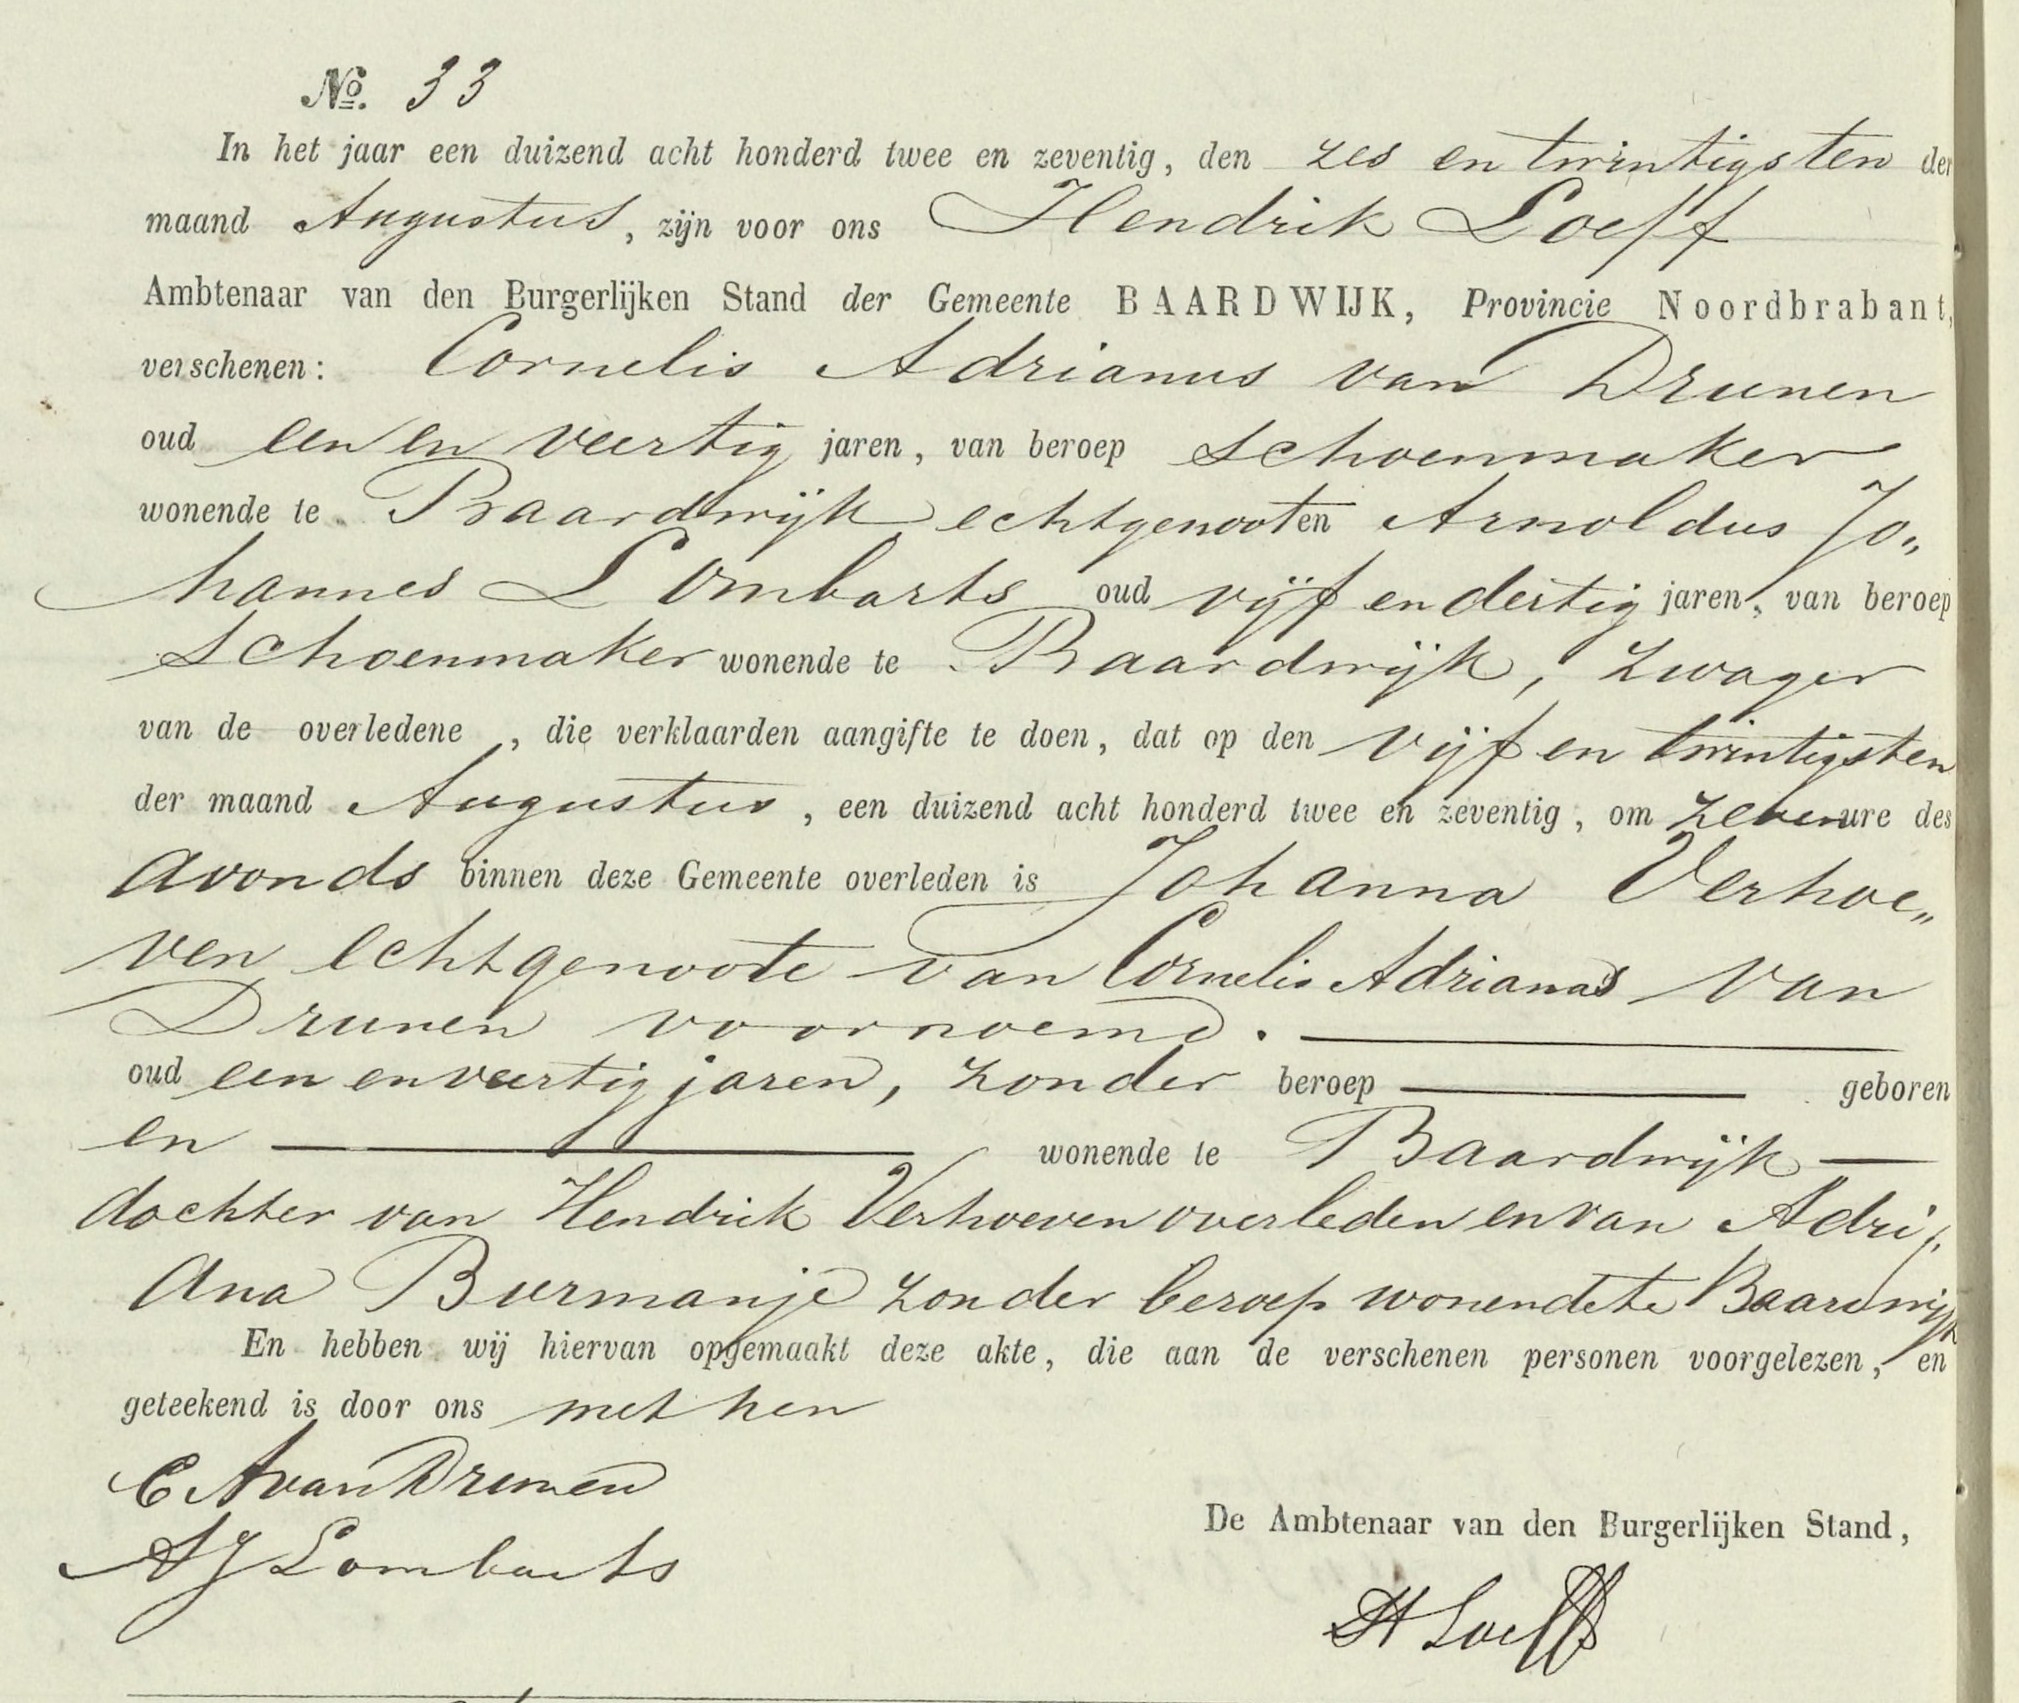 No. 33
In het jaar een duizend acht honderd twee en zeventig, den zes en twintigsten der
maand Augustus, zijn voor ons Hendrik Loeff
Ambtenaar van den Burgerlijken Stand der Gemeente BAARDWIJK, Provincie Noordbrabant,
verschenen: Cornelis Adrianus van Drunen
oud een en veertig jaren, van beroep schoenmaker
wonende te Baardwijk echtgenooten Arnoldus Jo„
hannes Lombarts oud vijf en dertig jaren, van beroep
schoenmaker wonende te Baardwijk, zwager
van de overledene, die verklaarden aangifte te doen, dat op den vijf en twintigsten
der maand Augustus, een duizend acht honderd twee en zeventig, om zeven ure des
avonds binnen deze Gemeente overleden is Johanna Verhoe„
ven echtgenoote van Cornelis Adrianus van
Drunen voornoemd.
oud een en veertig jaren, zonder beroep geboren
en wonende te Baardwijk
dochter van Hendrik Verhoeven overleden en van Adri„
ana Burmanje zonder beroep wonende te Baardwijk
En hebben wij hiervan opgemaakt deze akte, die aan de verschenen personen voorgelezen, en
geteekend is door ons met hen
C A van Drunen
A J Lombarts
De Ambtenaar van den Burgerlijken Stand,
H Loeff